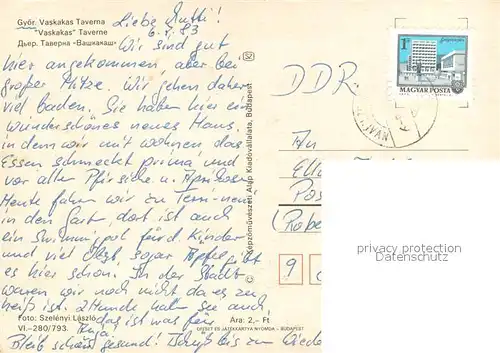 Győr. Vaskakas Taverna
"Vaskakas" Taverne
Дьер. Таверна «Вашкакаш»
Liebe Mutti!
6.7.83
Wir sind gut
hier angekommen, aber bei
großer Hitze. Wir gehen daher
viel baden. Sie haben hier ein
wunderschönes neues Haus,
in dem wir mit wohnen das
Essen schmeckt prima und
vor allem Pfirsiche u. Aprikosen
Heute fahren wir zu
in den Gart. dort ist auch
ein Swimmigpol für d. Kinder
und viel Obst, sogar Äpfel gibt
es hier schon. In der Stadt
waren wir noch nicht da es zu
heiß ist. 2 Hunde haben sie auch,
ist was für
Bleib schön gesund! bis zum Wiede
Foto: Szelényi László
VI.–280/793.
Ára: 2,– Ft
OFFSET ÉS JÁTÉKKÁRTYA NYOMDA – BUDAPEST
Képzőművészeti Alap Kiadóvállalata, Budapest
DDR
1 Ft
MAGYAR POSTA
An
Pos
9
privacy protection
Datenschutz